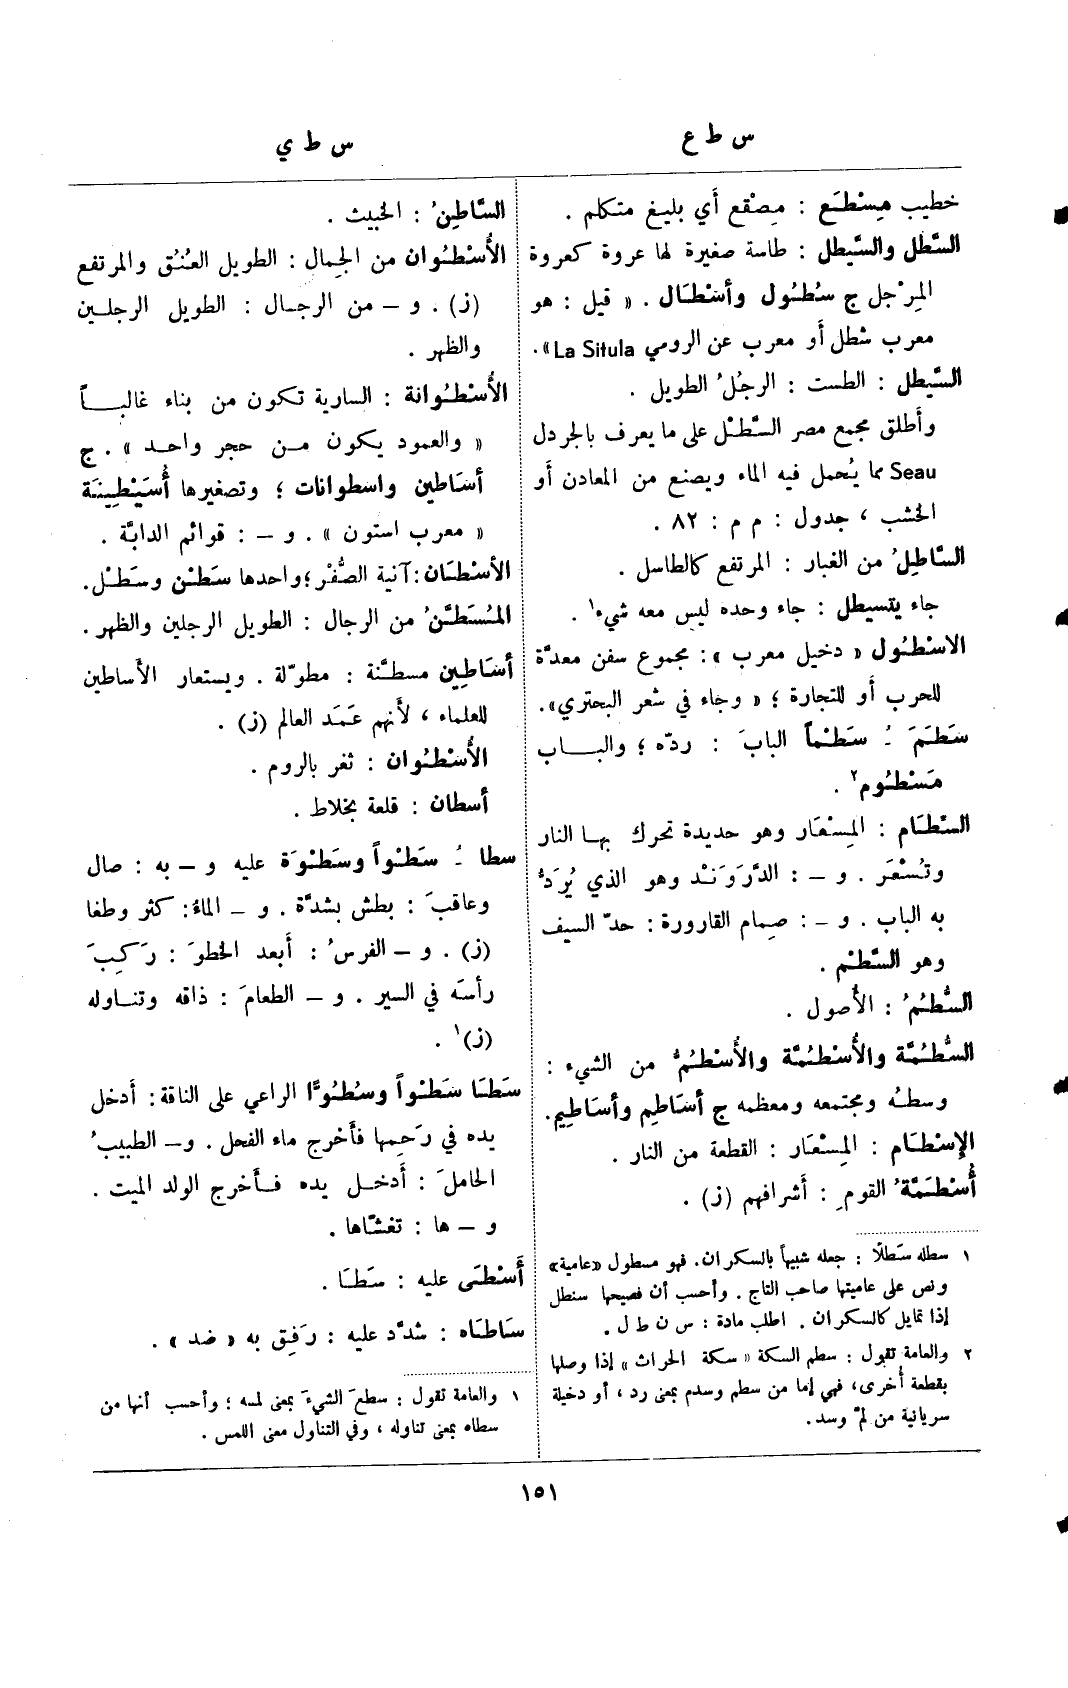 س ط ع
س ط ي
خطيب مِسْطَع : مِصْقع أي بليغ متكلم .
السَّطْل والسَّيطل : طاسة صغيرة لها عروة كعروة
المِرْجل ج سُطُول وأسْطَال . « قيل : هو
معرب شطل أو معرب عن الرومي La Situla ».
السَّيطل : الطست : الرجُلُ الطويل .
وأطلق مجمع مصر السَّطْل على ما يعرف بالجردل
Seau مما يُحمل فيه الماء ويصنع من المعادن أو
الخشب ، جدول : م م : ٨٢ .
السَّاطِلُ من الغبار : المرتفع كالطاسل .
جاء يتسيطل : جاء وحده ليس معه شيء١ .
الاسْطُول « دخيل معرب » : مجموع سفن معدَّة
للحرب أو للتجارة ؛ « وجاء في شعر البحتري».
سَطَمَ ـُ سَطْماً البابَ : ردّه ؛ والبـاب
مَسْطُوم٢ .
السِّطَام : المِسْعَار وهو حديدة تحرك بها النار
وتُسْعَر . و – : الدَّرَوَنْد وهو الذي يُرَدُّ
به الباب . و – : صِمام القارورة : حدّ السيف
وهو السَّطْم .
السُّطُمُ : الأُصول .
السُّطُمَّة والأُسْطُمَّة والأُسْطُمُّ من الشيء :
وسطهُ ومجتمعه ومعظمه ج أسَاطِم وأسَاطِيم.
الإسْطَام : المِسْعَار : القطعة من النار .
أُسْطَمَّةُ القومِ : أشرافهم (ز) .
١ سطله سَطلًا : جعله شبيهاً بالسكران. فهو مسطول «عامية»
ونص على عاميتها صاحب التاج . وأحسب أن فصيحها سنطل
إذا تمايل كالسكران . اطلب مادة : س ن ط ل .
٢ والعامة تقول : سطم السكة « سكة الحراث » إذا وصلها
بقطعة أُخرى، فهي إما من سطم وسدم بمعنى رد ، أو دخيلة
سريانية من لمّ وسد.
السَّاطِنُ : الخبيث .
الأُسْطُوان من الجِمال : الطويل العُنُق والمرتفع
(ز) . و – من الرجـال : الطويل الرجلـين
والظهر .
الأُسْطُوانة : السارية تكون من بناء غالبـاً
« والعمود يكون مـن حجر واحـد » . ج
أسَاطين واسطوانات ؛ وتصغيرها أُسَيْطِينَة
« معرب استون » . و – : قوائم الدابَّة .
الأسْطَان : آنية الصُّفْر ؛ واحدها سَطْن وسَطْل.
المُسَطَّنُ من الرجال : الطويل الرجلين والظهر .
أسَاطِين مسطَّنة : مطوّلة . ويستعار الأساطين
للعلماء ، لأنهم عَمَد العالم (ز) .
الأُسْطُوان : ثغر بالروم .
أسطان : قلعة بخلاط .
سطا ـُ سَطْواً وسَطْوَة عليه و – به : صال
وعاقبَ : بطش بشدَّة . و – الماءُ : كثر وطغا
(ز) . و – الفرسُ : أبعد الخطوَ : رَكِبَ
رأسَه في السير . و – الطعامَ : ذاقه وتنـاوله
(ز)١ .
سَطَا سَطْواً وسُطُوًّا الراعي على الناقة : أدخل
يده في رَحِمها فأخرج ماء الفحل . و– الطبيبُ
الحاملَ : أدخـل يده فـأخرج الولد الميت .
و – ها : تغشّاها .
أَسْطَى عليه : سَطَا .
سَاطَاه : شدَّد عليه : رَفِق به « ضد » .
١ والعامة تقول : سطعَ الشيءَ بمعنى لمسه ؛ وأحسب أنها من
سطاه بمعنى تناوله ، وفي التناول معنى اللمس .
١٥١